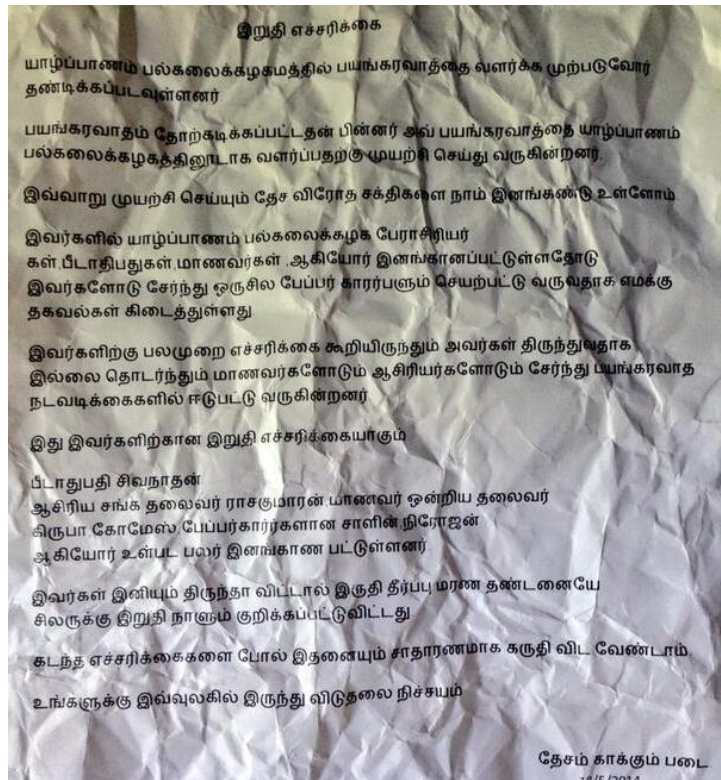 இறுதி எச்சரிக்கை
யாழ்ப்பாணம் பல்கலைக்கழகமத்தில் பயங்கரவாத்தை வளர்க்க முற்படுவோர்
தண்டிக்கப்படவுள்ளனர்
பயங்கரவாதம் தோற்கடிக்கப்பட்டதன் பின்னர் அவ் பயங்கரவாத்தை யாழ்ப்பாணம்
பல்கலைக்கழகத்தினூடாக வளர்ப்பதற்கு முயற்சி செய்து வருகின்றனர்.
இவ்வாறு முயற்சி செய்யும் தேச விரோத சக்திகளை நாம் இனங்கண்டு உள்ளோம்
இவர்களில் யாழ்ப்பாணம் பல்கலைக்கழக பேராசிரியர்
கள்,பீடாதிபதுகள்,மாணவர்கள் ,ஆகியோர் இனங்கானப்பட்டுள்ளதோடு
இவர்களோடு சேர்ந்து ஒருசில பேப்பர் காரர்பளும் செயற்பட்டு வருவதாக எமக்கு
தகவல்கள் கிடைத்துள்ளது
இவர்களிற்கு பலமுறை எச்சரிக்கை கூறியிருந்தும் அவர்கள் திருந்துவதாக
இல்லை தொடர்ந்தும் மாணவர்களோடும் ஆசிரியர்களோடும் சேர்ந்து பயங்கரவாத
நடவடிக்கைகளில் ஈடுபட்டு வருகின்றனர்
இது இவர்களிற்கான இறுதி எச்சரிக்கையாகும்
பீடாதுபதி சிவநாதன்
ஆசிரிய சங்க தலைவர் ராசகுமாரன்,மாணவர் ஒன்றிய தலைவர்
கிருபா,கோமேஸ்,பேப்பர்கார்ர்களான சாளின்,நிரோஜன்
ஆகியோர் உள்பட பலர் இனங்காண பட்டுள்ளனர்
இவர்கள் இனியும் திருந்தா விட்டால் இருதி தீர்ப்பு மரண தண்டனையே
சிலருக்கு இறுதி நாளும் குறிக்கப்பட்டுவிட்டது
கடந்த எச்சரிக்கைகளை போல் இதனையும் சாதாரணமாக கருதி விட வேண்டாம்.
உங்களுக்கு இவ்வுலகில் இருந்து விடுதலை நிச்சயம்
தேசம் காக்கும் படை